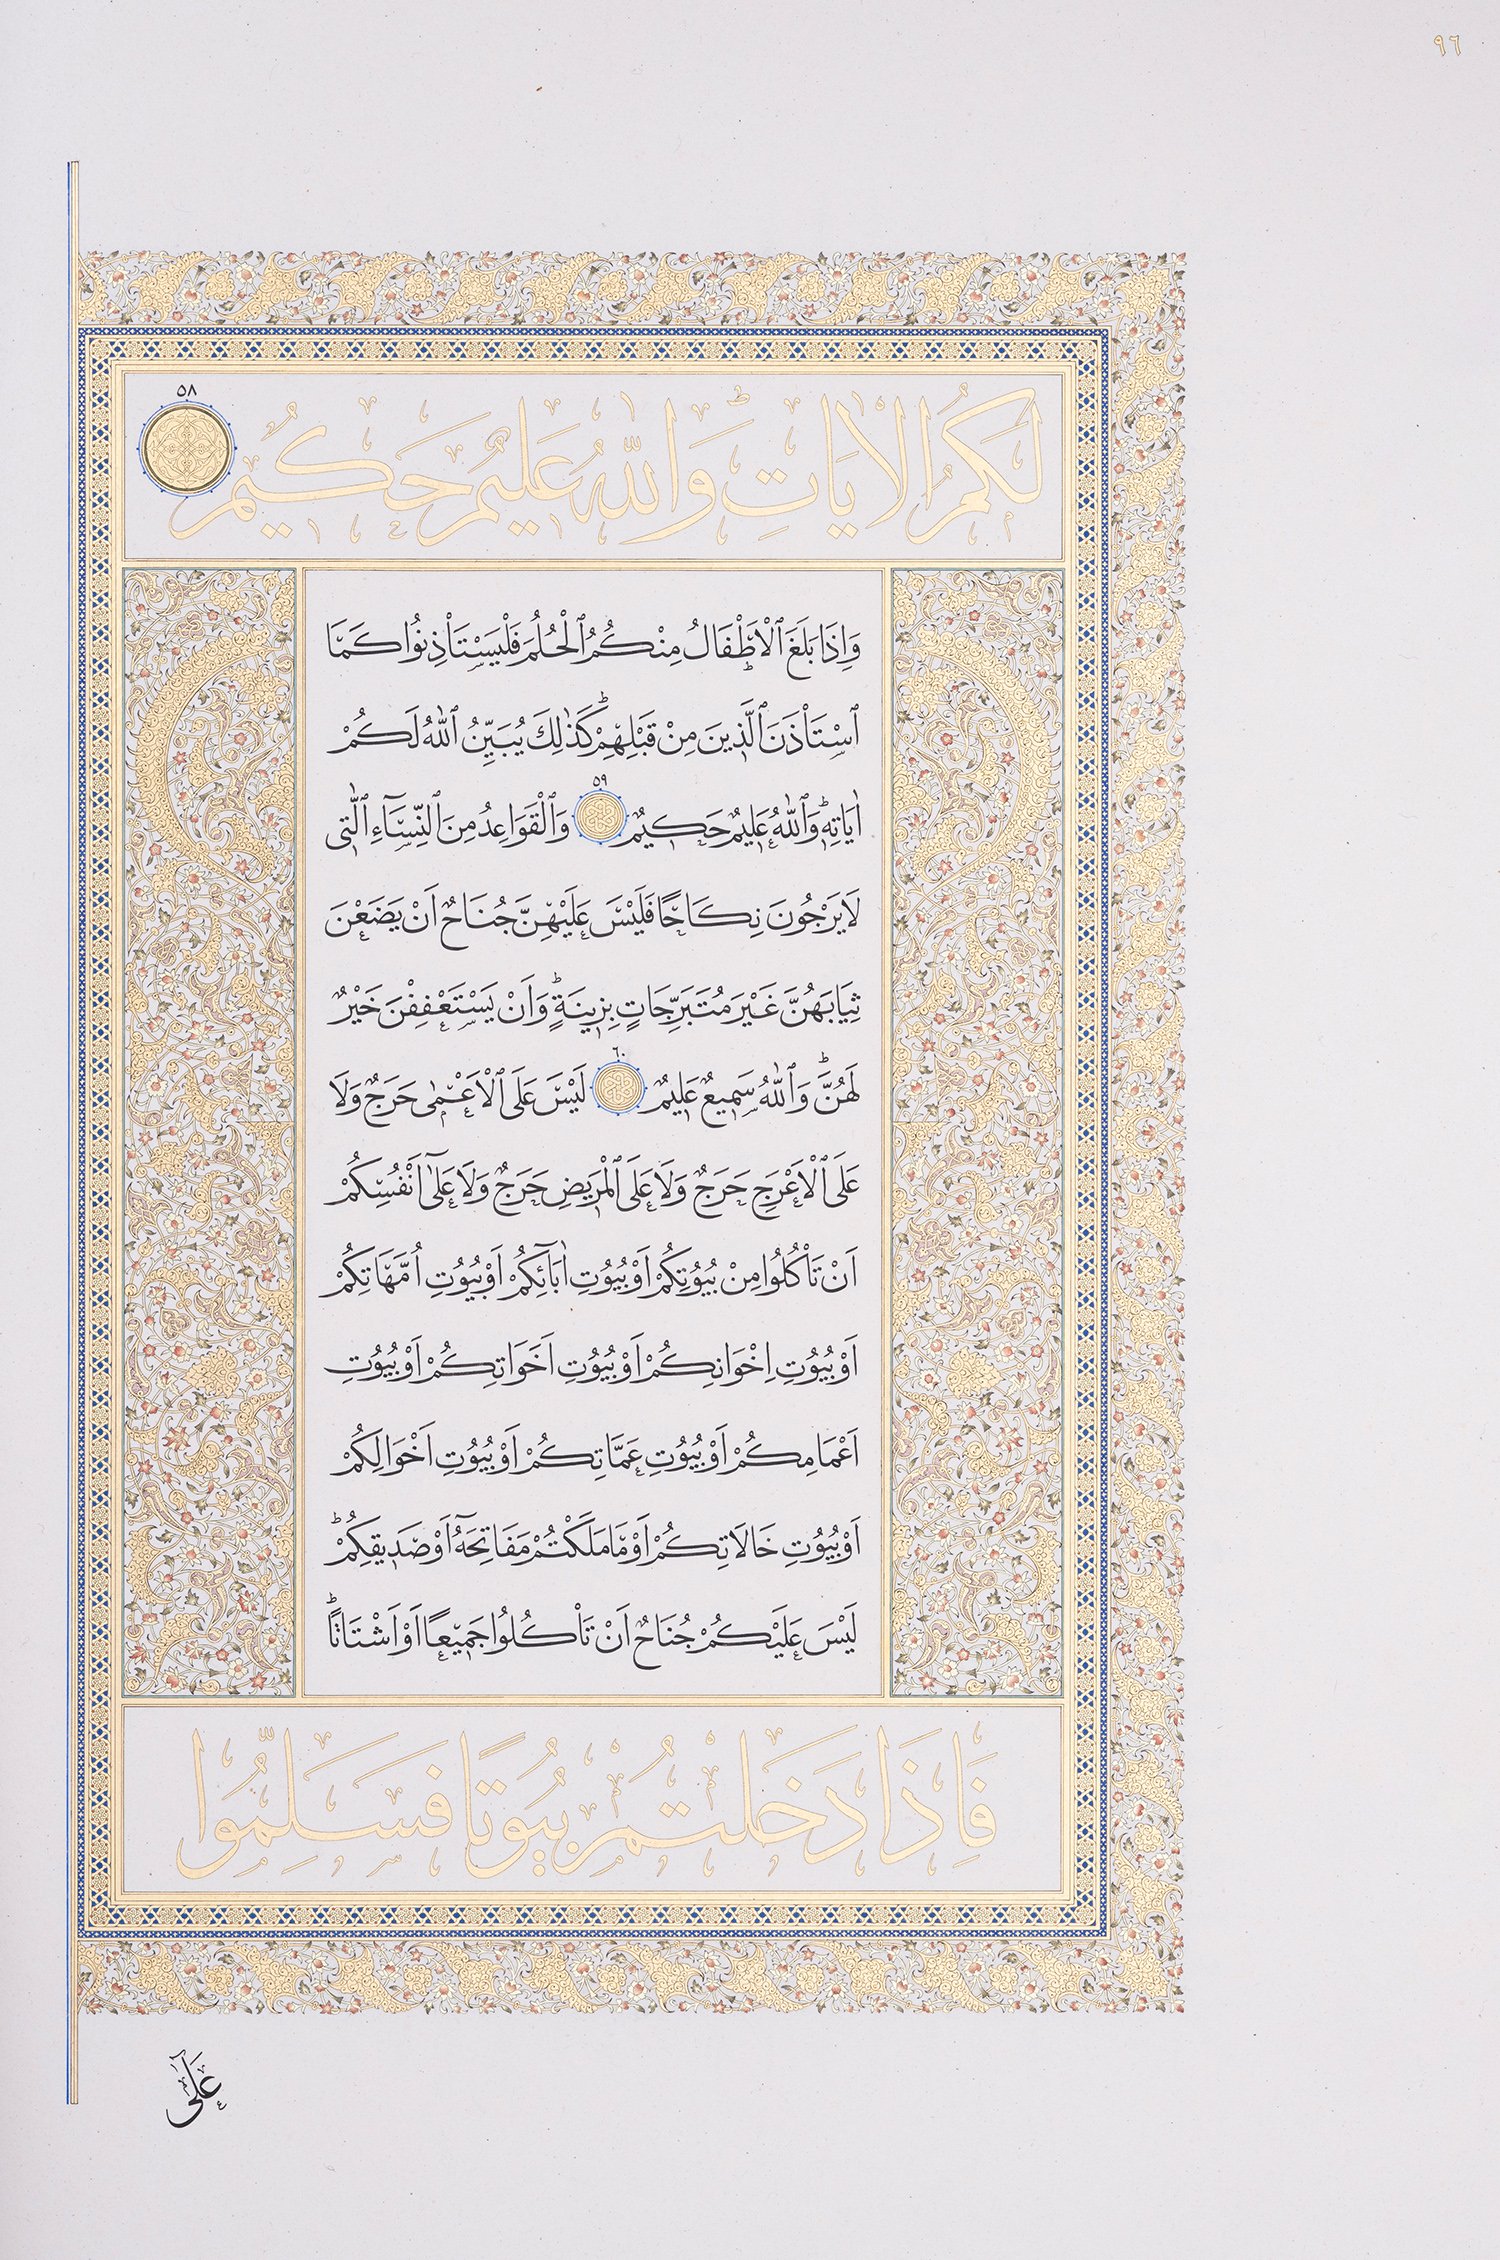 ٩٦
٥٨
لَكُمُ الْاٰيَاتِۜ وَاللّٰهُ عَلِيمٌ حَكِيمٌ
وَاِذَا بَلَغَ ٱلْاَطْفَالُ مِنْكُمُ ٱلْحُلُمَ فَلْيَسْتَأْذِنُوا كَمَا
ٱسْتَأْذَنَ ٱلَّذِينَ مِنْ قَبْلِهِمْۜ كَذٰلِكَ يُبَيِّنُ ٱللّٰهُ لَكُمْ
اٰيَاتِهِۜ وَٱللّٰهُ عَلِيمٌ حَكِيمٌ ٥٩ وَٱلْقَوَاعِدُ مِنَ ٱلنِّسَٓاءِ ٱلّٰتِى
لَا يَرْجُونَ نِكَاحًا فَلَيْسَ عَلَيْهِنَّ جُنَاحٌ اَنْ يَضَعْنَ
ثِيَابَهُنَّ غَيْرَ مُتَبَرِّجَاتٍ بِزِينَةٍۜ وَاَنْ يَسْتَعْفِفْنَ خَيْرٌ
لَهُنَّۜ وَٱللّٰهُ سَمِيعٌ عَلِيمٌ ٦٠ لَيْسَ عَلَى ٱلْاَعْمٰى حَرَجٌ وَلَا
عَلَى ٱلْاَعْرَجِ حَرَجٌ وَلَا عَلَى ٱلْمَرِيضِ حَرَجٌ وَلَا عَلٰٓى اَنْفُسِكُمْ
اَنْ تَأْكُلُوا مِنْ بُيُوتِكُمْ اَوْ بُيُوتِ اٰبَٓائِكُمْ اَوْ بُيُوتِ اُمَّهَاتِكُمْ
اَوْ بُيُوتِ اِخْوَانِكُمْ اَوْ بُيُوتِ اَخَوَاتِكُمْ اَوْ بُيُوتِ
اَعْمَامِكُمْ اَوْ بُيُوتِ عَمَّاتِكُمْ اَوْ بُيُوتِ اَخْوَالِكُمْ
اَوْ بُيُوتِ خَالَاتِكُمْ اَوْ مَا مَلَكْتُمْ مَفَاتِحَهُٓ اَوْ صَدِيقِكُمْۜ
لَيْسَ عَلَيْكُمْ جُنَاحٌ اَنْ تَأْكُلُوا جَمِيعًا اَوْ اَشْتَاتًاۜ
فَاِذَا دَخَلْتُمْ بُيُوتًا فَسَلِّمُوا
عَلٰٓى